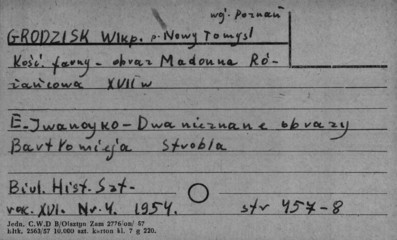 woj. Poznań
GRODZISK Wlkp. p. Nowy Tomyśl
Kość. farny - obraz Madonna Ró-
żańcowa XVII w
E. Iwanoyko - Dwa nieznane obrazy
Bartłomieja Strobla
Biul. Hist. Szt.
rok. XVI. Nr. 4. 1954. str 457-8
Jedn. C.W.D B/Olsztyn Zam 2776/on/ 57
hftk. 2563/57 10.000 szt. karton kl. 7 g 220.